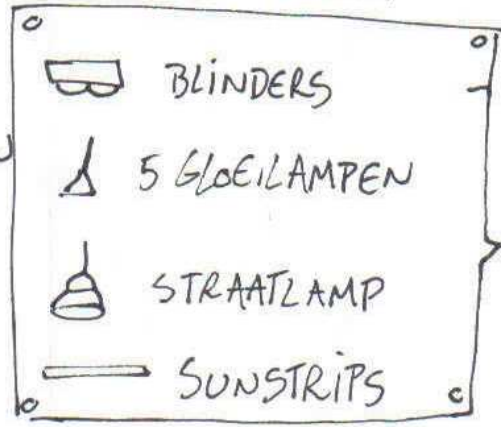 BLINDERS
5 GLOEILAMPEN
STRAATLAMP
SUNSTRIPS